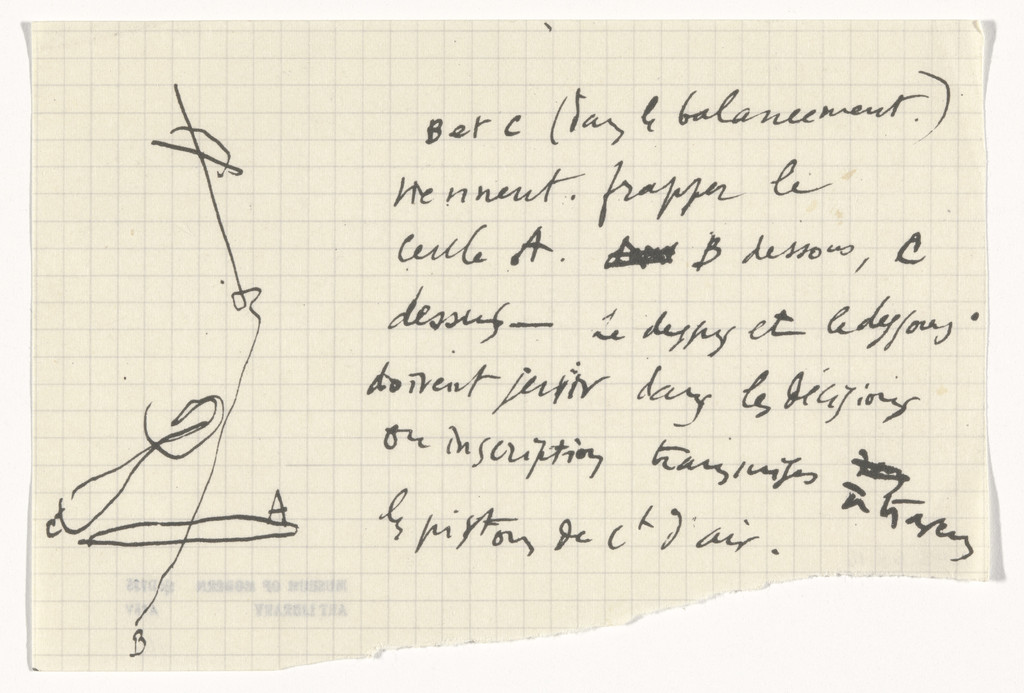 B et C (dans le balancement.)
viennent. frapper le
cercle A. B dessous, C
dessus — Le dessus et le dessous
doivent servir dans les décisions
ou inscriptions transmises
à travers
les pistons de ct d'air.
C
A
B
MUSEUM OF MODERN
ART LIBRARY